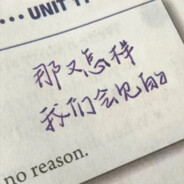 ... UNIT 1
那又怎样
我们会见的
no reason.